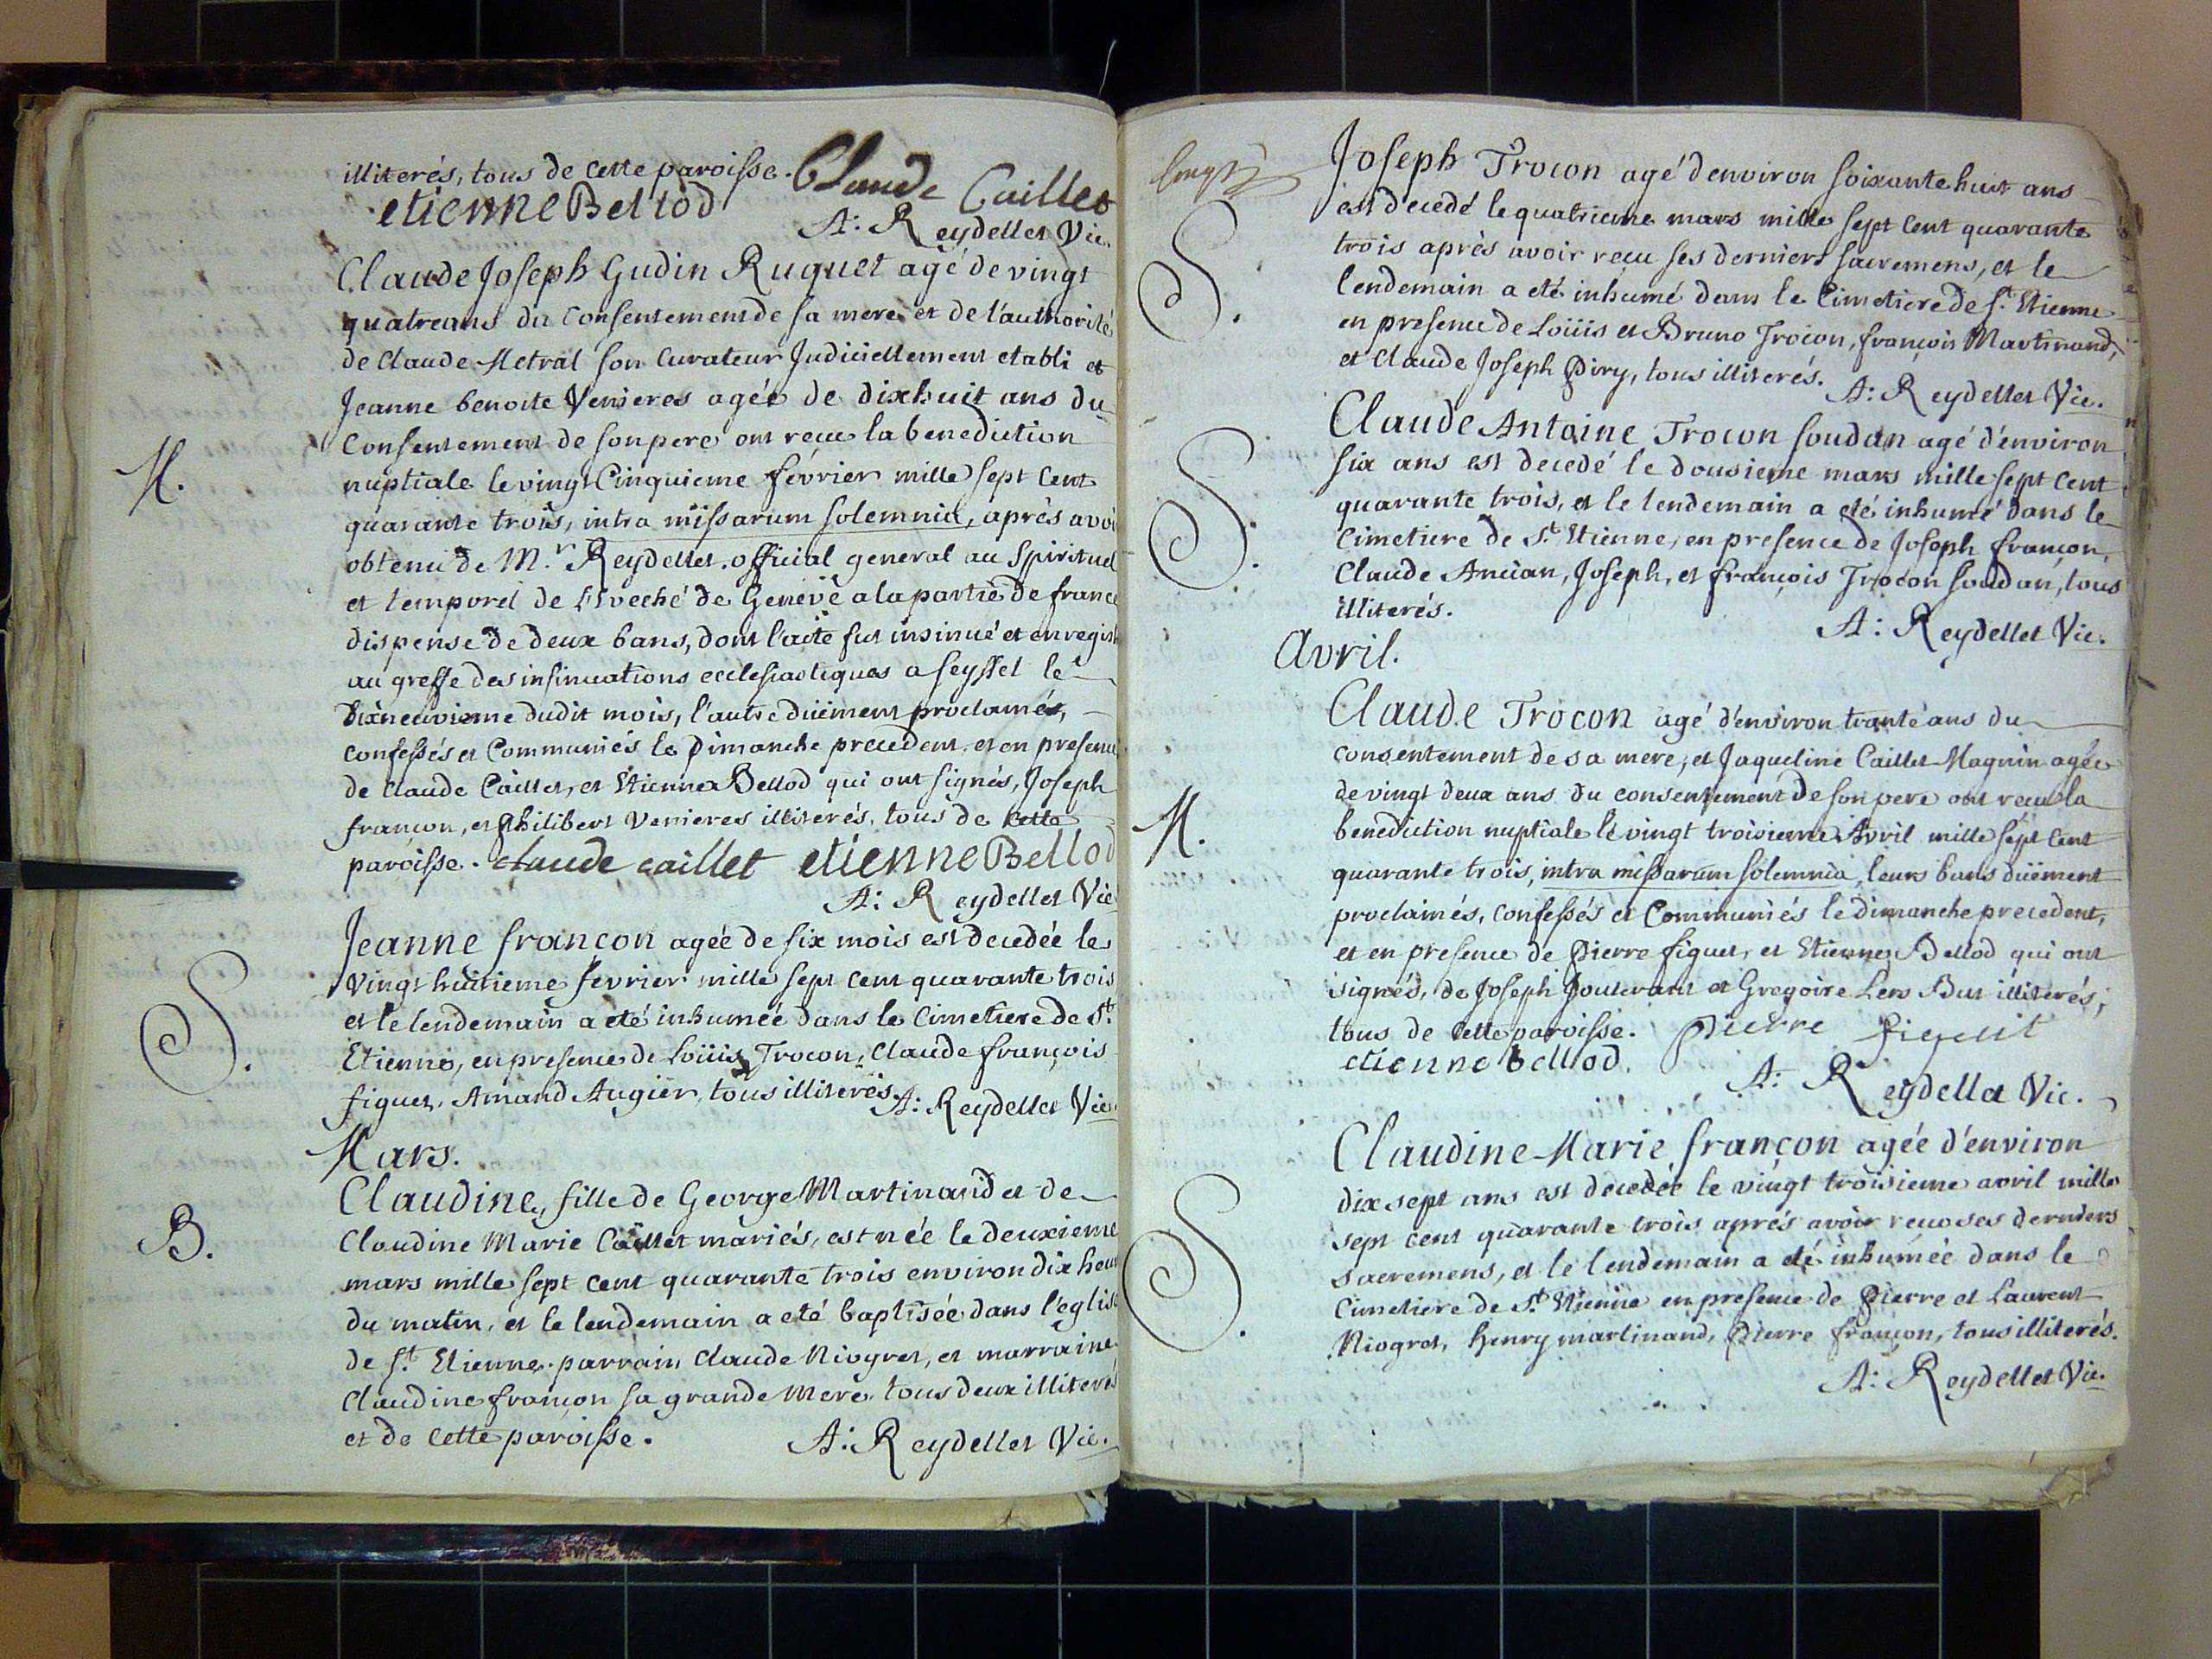 illiterés, tous de cette paroisse. Claude Caillet
etienne Bellod
A: Reydellet Vic.
Claude Joseph Gudin Ruquet agé de vingt
quatre ans du Consentement de sa mere et de l'authorité
de Claude Metral son Curateur Judiciellement etabli et
Jeanne benoite Venieres ageé de dixhuit ans du
Consentement de son pere ont recu la benediction
M.
nuptiale le vingt Cinquieme février mille sept Cent
quarante trois, intra missarum solemnia, après avoi
obtenu de Mr. Reydellet official general au Spirituel
et temporel de L'Eveché de Genève a la partie de france
dispense de deux bans, dont l'acte fut insinué et enregist
au greffe des insinuations ecclesiastiques a seyssel le
dixneuvieme dudit mois, l'autre düement proclamés,
confessés et Communiés le Dimanche precedent, et en presence
de Claude Caillet, et Etienne Bellod qui ont signés, Joseph
françon, et philibert Venieres illiterés, tous de Cette
paroisse. claude caillet etienne Bellod
A: Reydellet Vic.
Jeanne françon ageé de six mois est decedée le
vingt huitieme fevrier mille sept cent quarante trois
et le lendemain a eté inhumeé dans le Cimetiere de St.
S.
Etienne, en presence de Loüis Trocon, Claude françois
figuet, Amand Augier, tous illiterés. A: Reydellet Vic.
Mars.
Claudine, fille de George Martinand et de
B.
Claudine Marie Caillet mariés, est née le deuxieme
mars mille sept cent quarante trois environ dix heur
du matin, et le lendemain a eté baptisée dans l'eglise
de St. Etienne. parrain Claude Niogret, et marraine
Claudine françon sa grande Mere, tous deux illiterés
et de Cette paroisse. A: Reydellet Vic.
Joseph Trocon agé d'environ soixante huit ans
est decedé le quatrieme mars mille sept cent quarante
trois après avoir reçu ses derniers sacremens, et le
S.
lendemain a eté inhumé dans le Cimetiere de St. Etienne
en presence de Loüis et Bruno Trocon, françois Martinand,
et Claude Joseph Diry, tous illiterés.
A: Reydellet Vic.
Claude Antoine Trocon soudan agé d'environ
six ans est decedé le dousieme mars mille sept cent
quarante trois, et le lendemain a eté inhumé dans le
S.
Cimetiere de St. Etienne, en presence de Joseph françon,
Claude Ancian, Joseph, et françois Trocon soudan, tous
illiterés.
A: Reydellet Vic.
Avril.
Claude Trocon agé d'environ trante ans du
consentement de sa mere, et Jaqueline Caillet Magnin ageé
de vingt deux ans du consentement de son pere ont recu la
M.
benediction nuptiale le vingt troisieme Avril mille sept Cent
quarante trois, intra missarum solemnia, leurs bans düement
proclamés, confessés et Communiés le dimanche precedent,
et en presence de Pierre figuet, et Etienne Bellod qui ont
signés, de Joseph Goutevant et Gregoire Lers But illiterés,
tous de Cette paroisse. Pierre figuit
etienne bellod.
A: Reydellet Vic.
Claudine Marie françon ageé d'environ
dix sept ans est decedée le vingt troisieme avril mille
sept cent quarante trois aprés avoir recu ses derniers
S.
sacremens, et le lendemain a eté inhumée dans le
Cimetiere de St. Etienne en présence de Pierre et Laurent
Niogret, henry martinand, Pierre françon, tous illiterés.
A: Reydellet Vic.